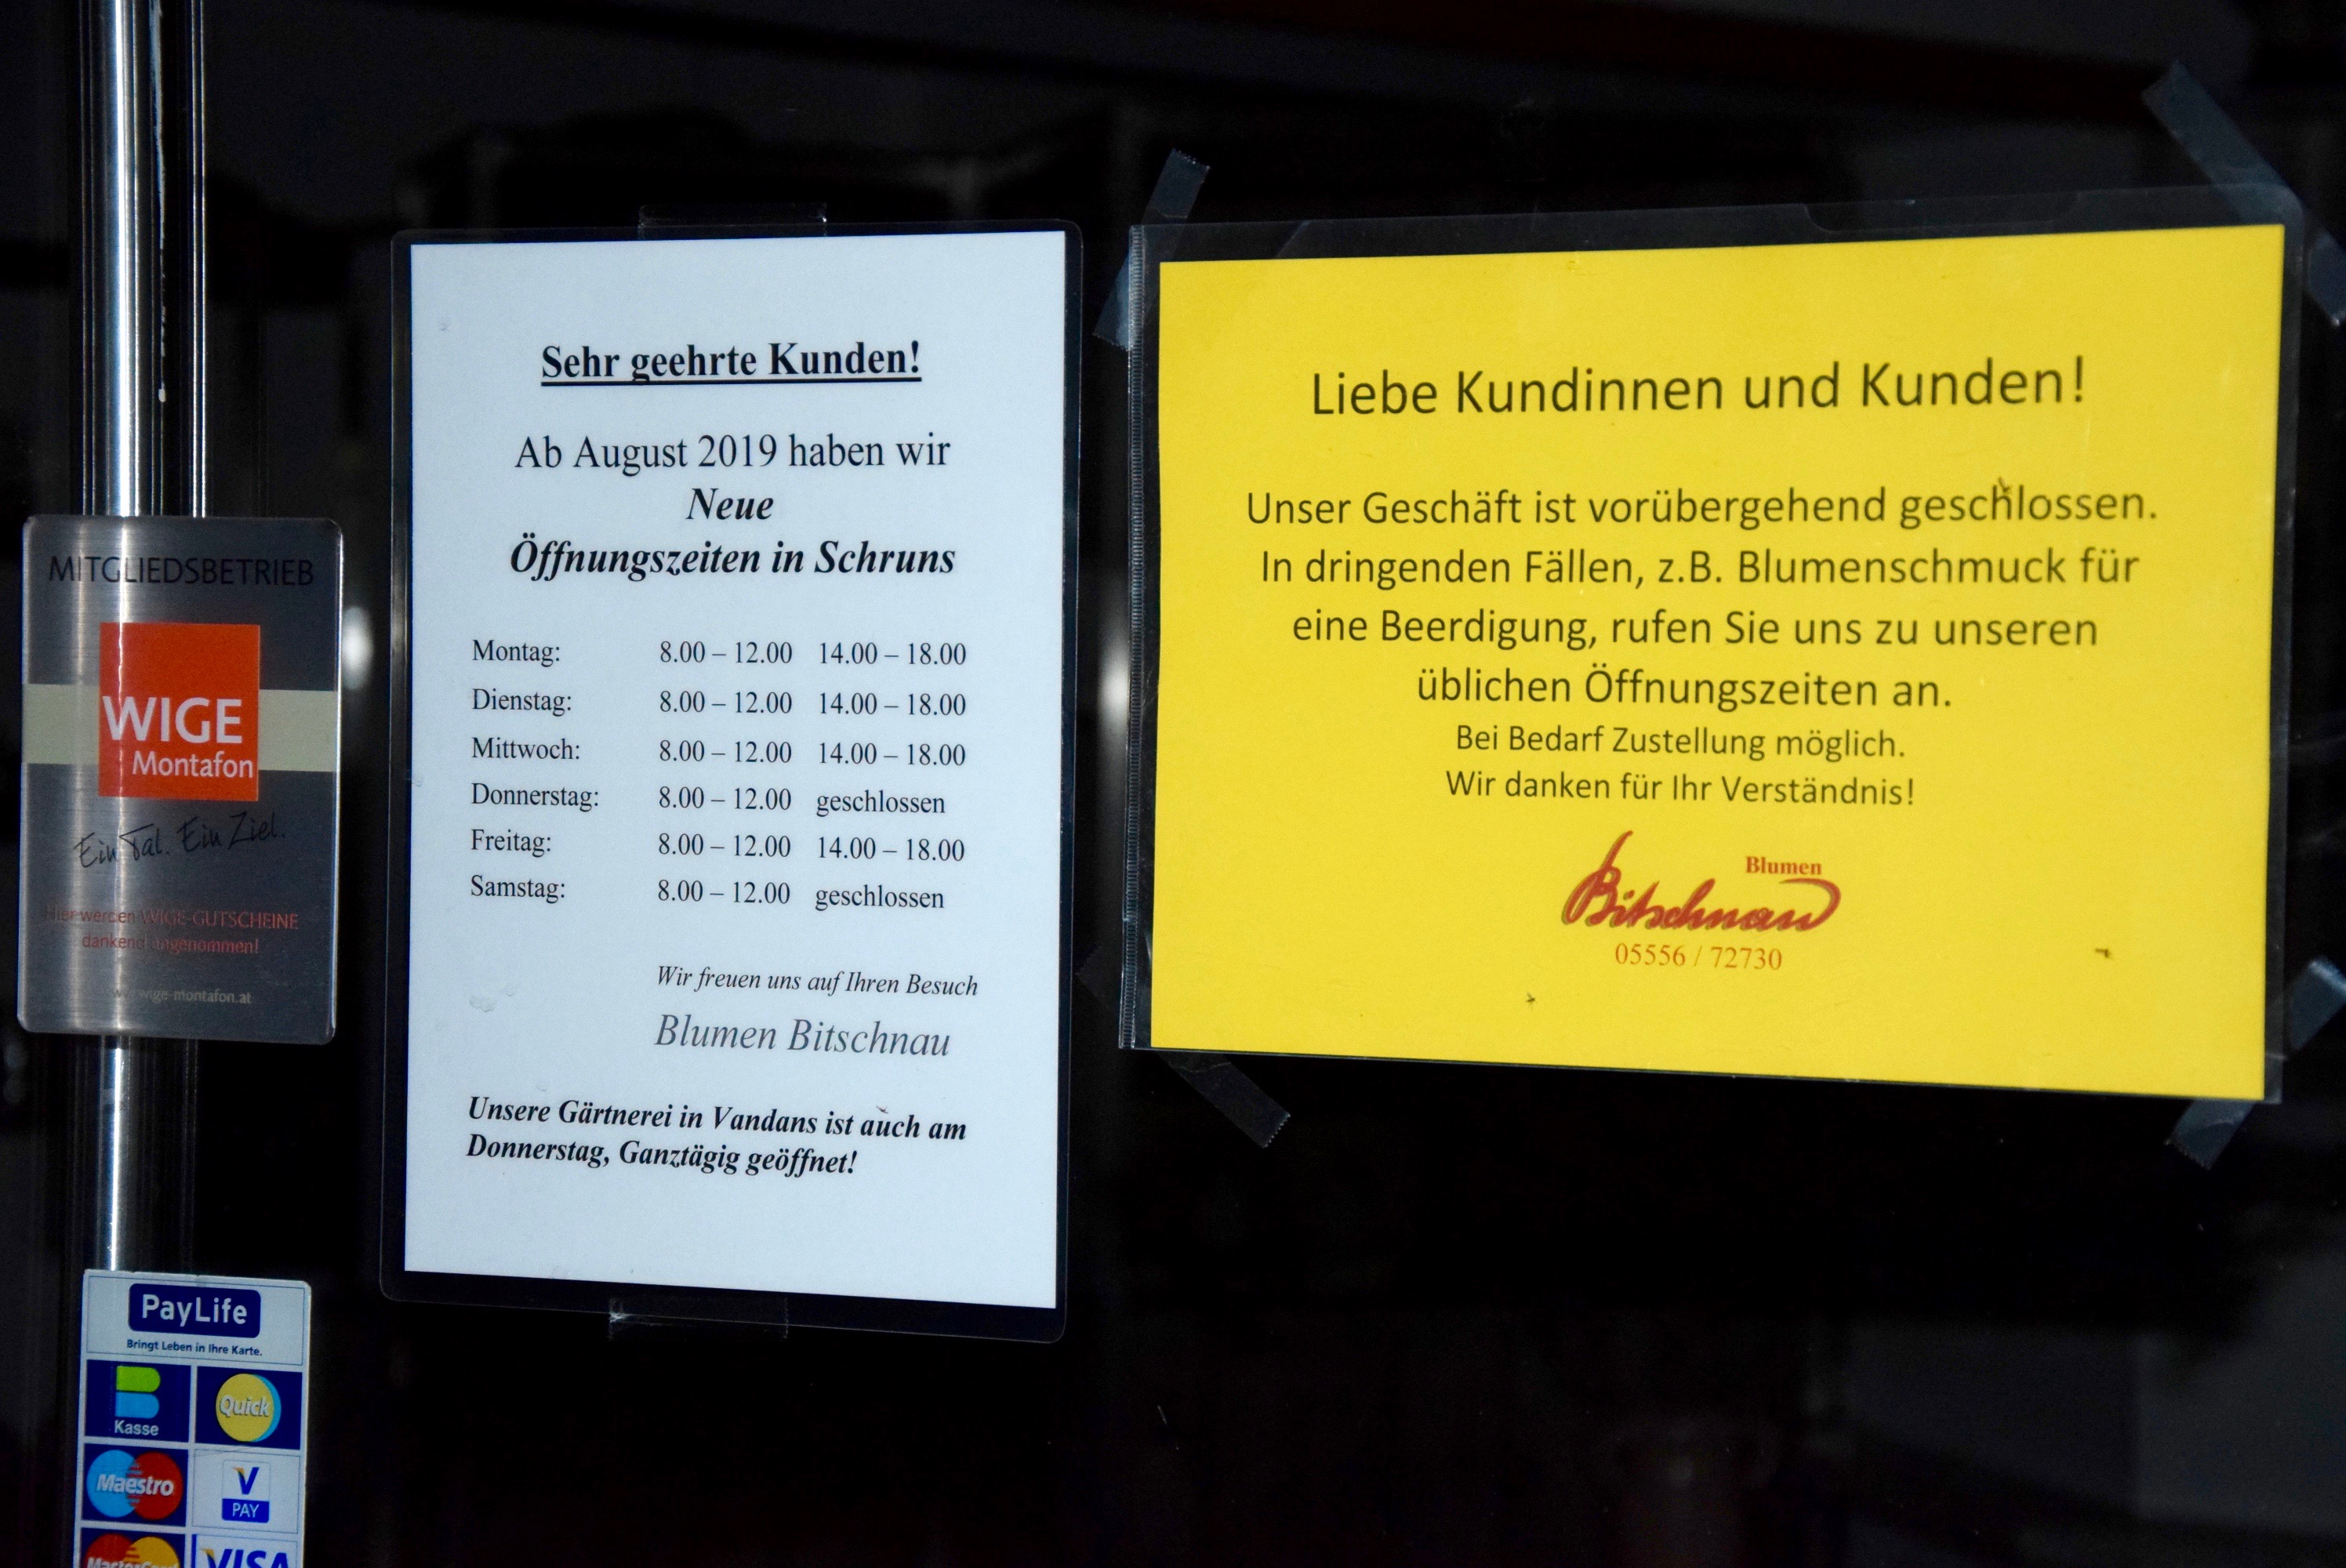 MITGLIEDSBETRIEB
WIGE
Montafon
Ein Tal. Ein Ziel.
Hier werden WIGE-GUTSCHEINE
dankend angenommen!
wige-montafon.at
PayLife
Bringt Leben in Ihre Karte.
Kasse
Quick
Maestro
V
PAY
MasterCard
VISA
Sehr geehrte Kunden!
Ab August 2019 haben wir
Neue
Öffnungszeiten in Schruns
Montag: 8.00 – 12.00 14.00 – 18.00
Dienstag: 8.00 – 12.00 14.00 – 18.00
Mittwoch: 8.00 – 12.00 14.00 – 18.00
Donnerstag: 8.00 – 12.00 geschlossen
Freitag: 8.00 – 12.00 14.00 – 18.00
Samstag: 8.00 – 12.00 geschlossen
Wir freuen uns auf Ihren Besuch
Blumen Bitschnau
Unsere Gärtnerei in Vandans ist auch am
Donnerstag, Ganztägig geöffnet!
Liebe Kundinnen und Kunden!
Unser Geschäft ist vorübergehend geschlossen.
In dringenden Fällen, z.B. Blumenschmuck für
eine Beerdigung, rufen Sie uns zu unseren
üblichen Öffnungszeiten an.
Bei Bedarf Zustellung möglich.
Wir danken für Ihr Verständnis!
Blumen
Bitschnau
05556 / 72730